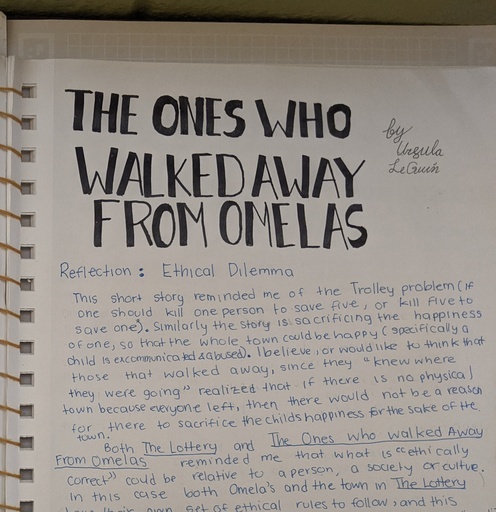 THE ONES WHO
WALKED AWAY
FROM OMELAS
by
Ursula
LeGuin
Reflection: Ethical Dilemma
This short story reminded me of the Trolley problem (if
one should kill one person to save five, or kill five to
save one). Similarly the story is sacrificing the happiness
of one, so that the whole town could be happy (specifically a
child is excommunicated & abused). I believe, or would like to think that
those that walked away, since they "knew where
they were going" realized that if there is no physical
town because everyone left, then there would not be a reason
for there to sacrifice the childs happiness for the sake of the
town.
Both The Lottery and The Ones who walked Away
From Omelas reminded me that what is "ethically
correct" could be relative to a person, a society or culture.
In this case both Omela's and the town in The Lottery
have their own set of ethical rules to follow, and this